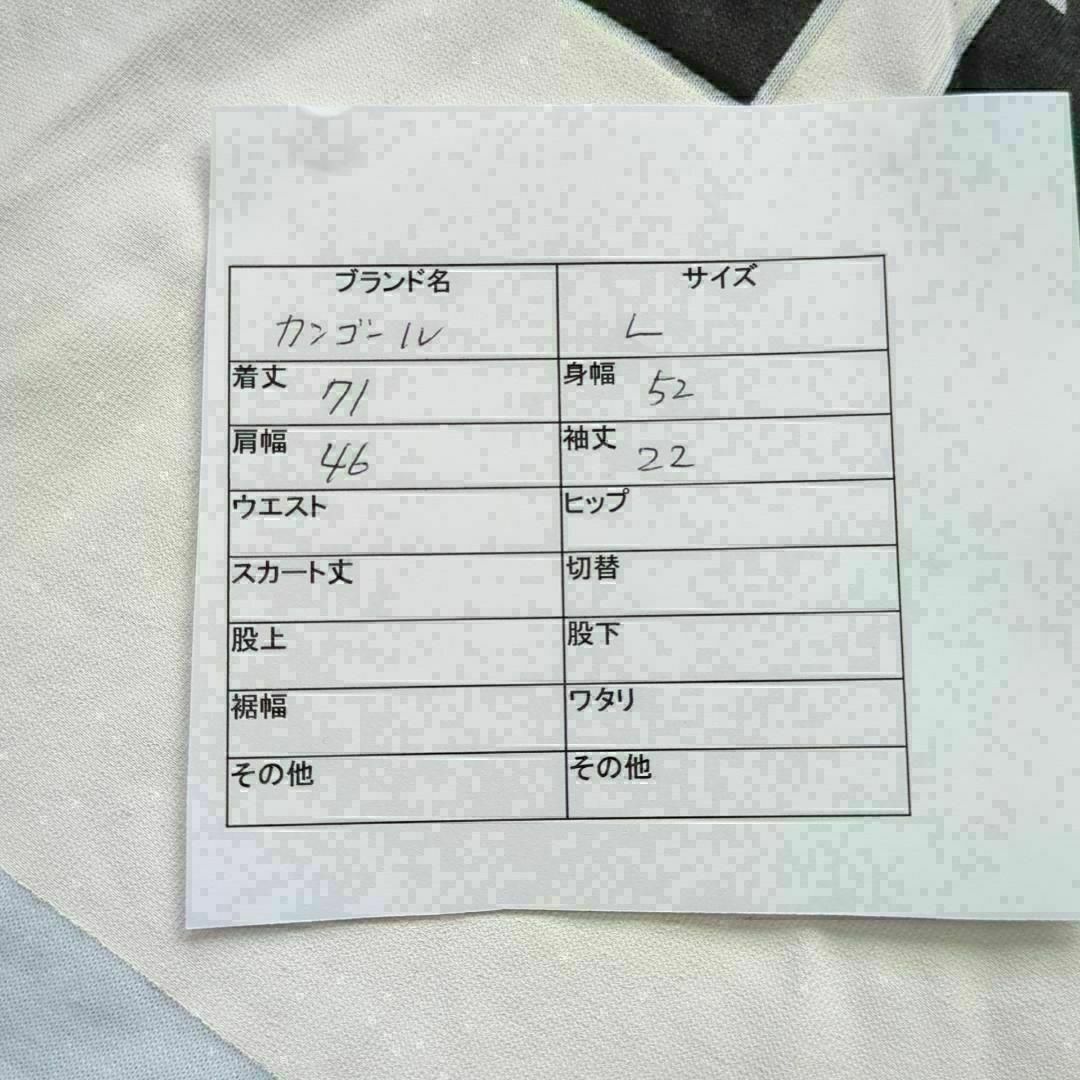 ブランド名 サイズ
カンゴール L
着丈 71 身幅 52
肩幅 46 袖丈 22
ウエスト ヒップ
スカート丈 切替
股上 股下
裾幅 ワタリ
その他 その他